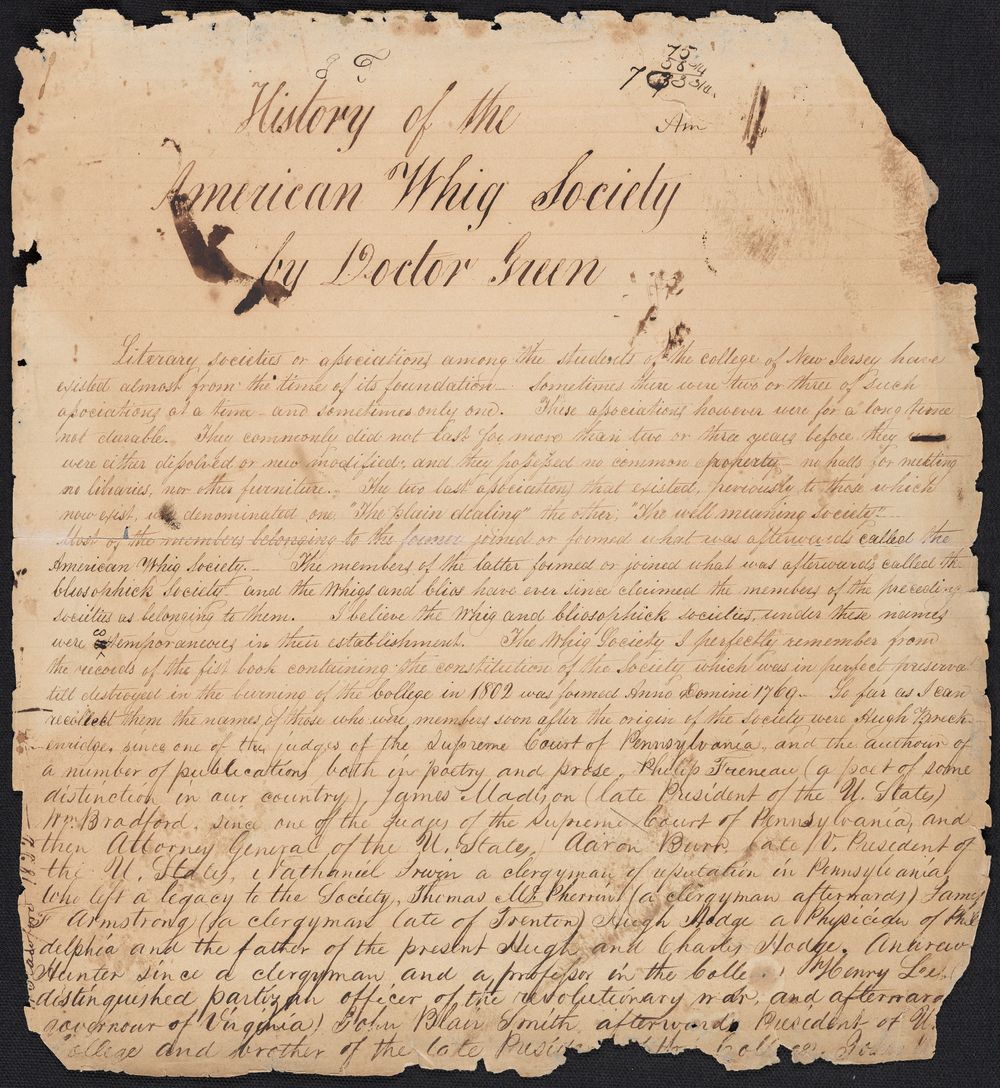 75
58
7 33
Am
History of the
American Whig Society
by Doctor Green
Literary societies or associations among the students of the college of New Jersey have
existed almost from the time of its foundation— Sometimes there were two or three of such
associations at a time - and sometimes only one. These associations however were for a long time
not durable. They commonly did not last for more than two or three years before they
were either dissolved or new modified, and they possessed no common property - no halls for meeting
no libraries, nor other furniture. — The two last associations that existed, previously to those which
now exist, denominated one "The plain dealing" the other, "The well meaning Society".
Most of the members belonging to the former joined or formed what was afterwards called the
American Whig Society. — The members of the latter formed or joined what was afterwards called the
Cliosophick Society - and the Whigs and Clios have ever since claimed the members of the preceding
societies as belonging to them. I believe the Whig and Cliosophick societies, under these names
were cotemporaneous in their establishment. The Whig Society I perfectly remember from
the records of the first book containing the constitution of the Society which was in perfect preserva
till destroyed in the burning of the College in 1802 was formed Anno Domini 1769 — So far as I can
recollect them the names of those who were members soon after the origin of the Society were Hugh Breck-
enridge, since one of the judges of the Supreme Court of Pennsylvania, and the authour of
a number of publications both in poetry and prose, Philip Freneau (a poet of some
distinction in our country), James Madison (late President of the U. States)
Wm. Bradford, since one of the Judges of the Supreme Court of Pennsylvania, and
then Attorney General of the U. States, Aaron Burr late V. President of
the U. States, Nathaniel Irwin a clergyman of reputation in Pennsylvania
who left a legacy to the Society, Thomas McPherrin (a clergyman afterwards) James
F Armstrong (a clergyman late of Trenton) Hugh Hodge a Physician of Phil
delphia and the father of the present Hugh and Charles Hodge. Andrew
Hunter since a clergyman and a professor in the Colle Henry Lee
distinguished partizan officer of the revolutionary war, and afterward
governour of Virginia) John Blair Smith, afterwards President of U.
College and brother of the late Preside
1822